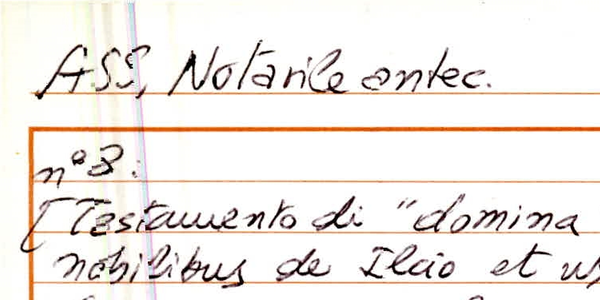 ASS, Notarile antec.
n° 3:
[Testamento di "domina
nobilibus de Ilcio et